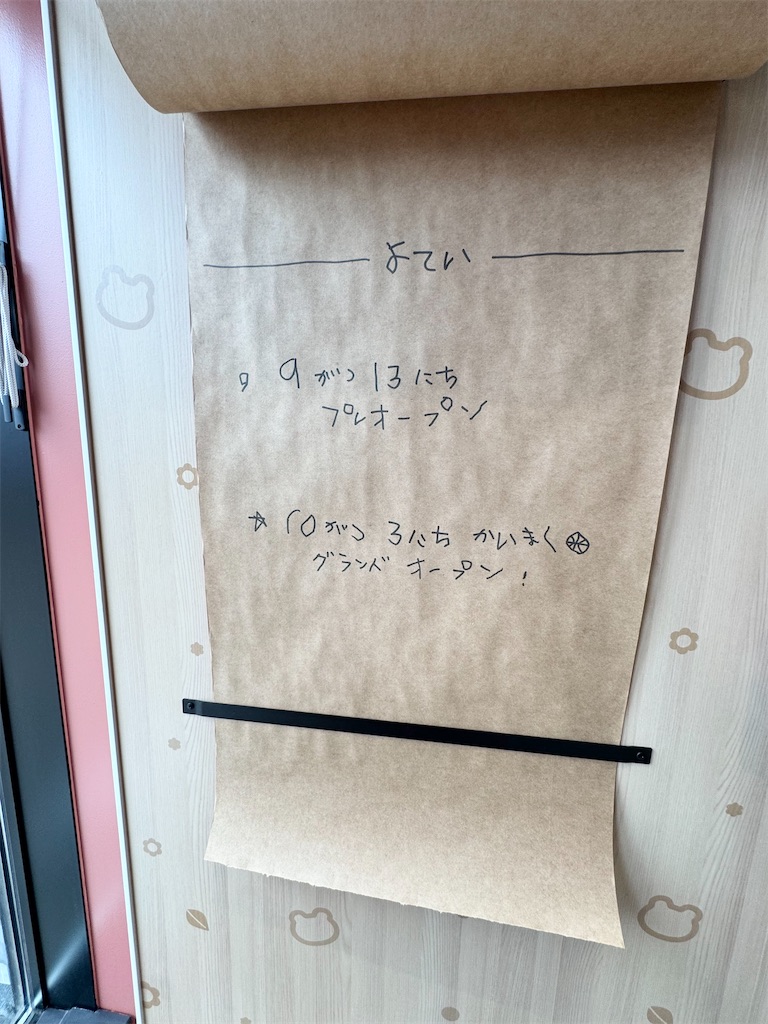 よてい
9がつ 13にち
プレオープン
☆ 10がつ 3にち かいまく
グランド オープン!